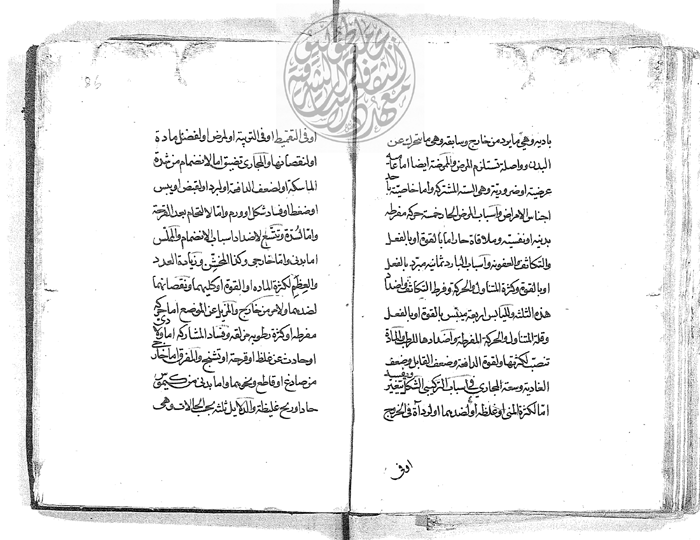 بادية وهى ما يرد من خارج وسابقه وهى ما يتحرك عن
البدن وواصلة تستلزم المرض والمرضة ايضا اما عامة
عرضية او ضرورية وهى الستة المشتركة واما خاصية باحد
اجناس الامراض واسباب المرض الحار خمسة حركة مفرطة
بدنية او نفسية وملاقاة حار اما بالقوة او بالفعل
والتكاثف والعفونة واسباب البارد ثمانية مبرد بالفعل
او بالقوة وكثرة المتناول والحركة وفرط التكاثف واضداد
هذه الثلثة ولليابس اربعة ميبس بالقوة او بالفعل
وقلة المتناول والحركة المفرطة واضدادها للرطب والمادة
تنصب لكثرتها ولقوة الدافعة وضعف القابل وضعف
الغاذية وسعة المجارى فى اسباب التركيبى الشكل يتغير
اما لكثرة المنى او غلظه او لضديهما او لرداءة فى الخروج
اوفى
86
اوفى التقميط اوفى التربية او لمرض او لفضل مادة
او لنقصانها والمجارى تضيق اما لانضمام من شدة
الماسكة او لضعف الدافعة او لبرد او لقبض او يبس
او ضغط او فساد شكل او ورم واما لالتحام بعد القرحة
واما لسدة وتتسع لاضداد اسباب الانضمام والملس
اما بدنى واما خارجى وكذا المخشن وزيادة العدد
والعظم لكثرة المادة او القوة او كليهما ونقصانهما
لضدهما ولامر من خارج والمزيل عن الموضع اما حركة
مفرطة او كثرة رطوبة مزلقة وفساد المشاركة اما ولادى
او حادث عن غلظ او قرحة او تشنج والمفرق اما خارجى
من صادع او قاطع ونحوهما واما بدنى من كيموس
حاد او ريح غليظة والدلايل ثلثة بحسب الحالات وهى